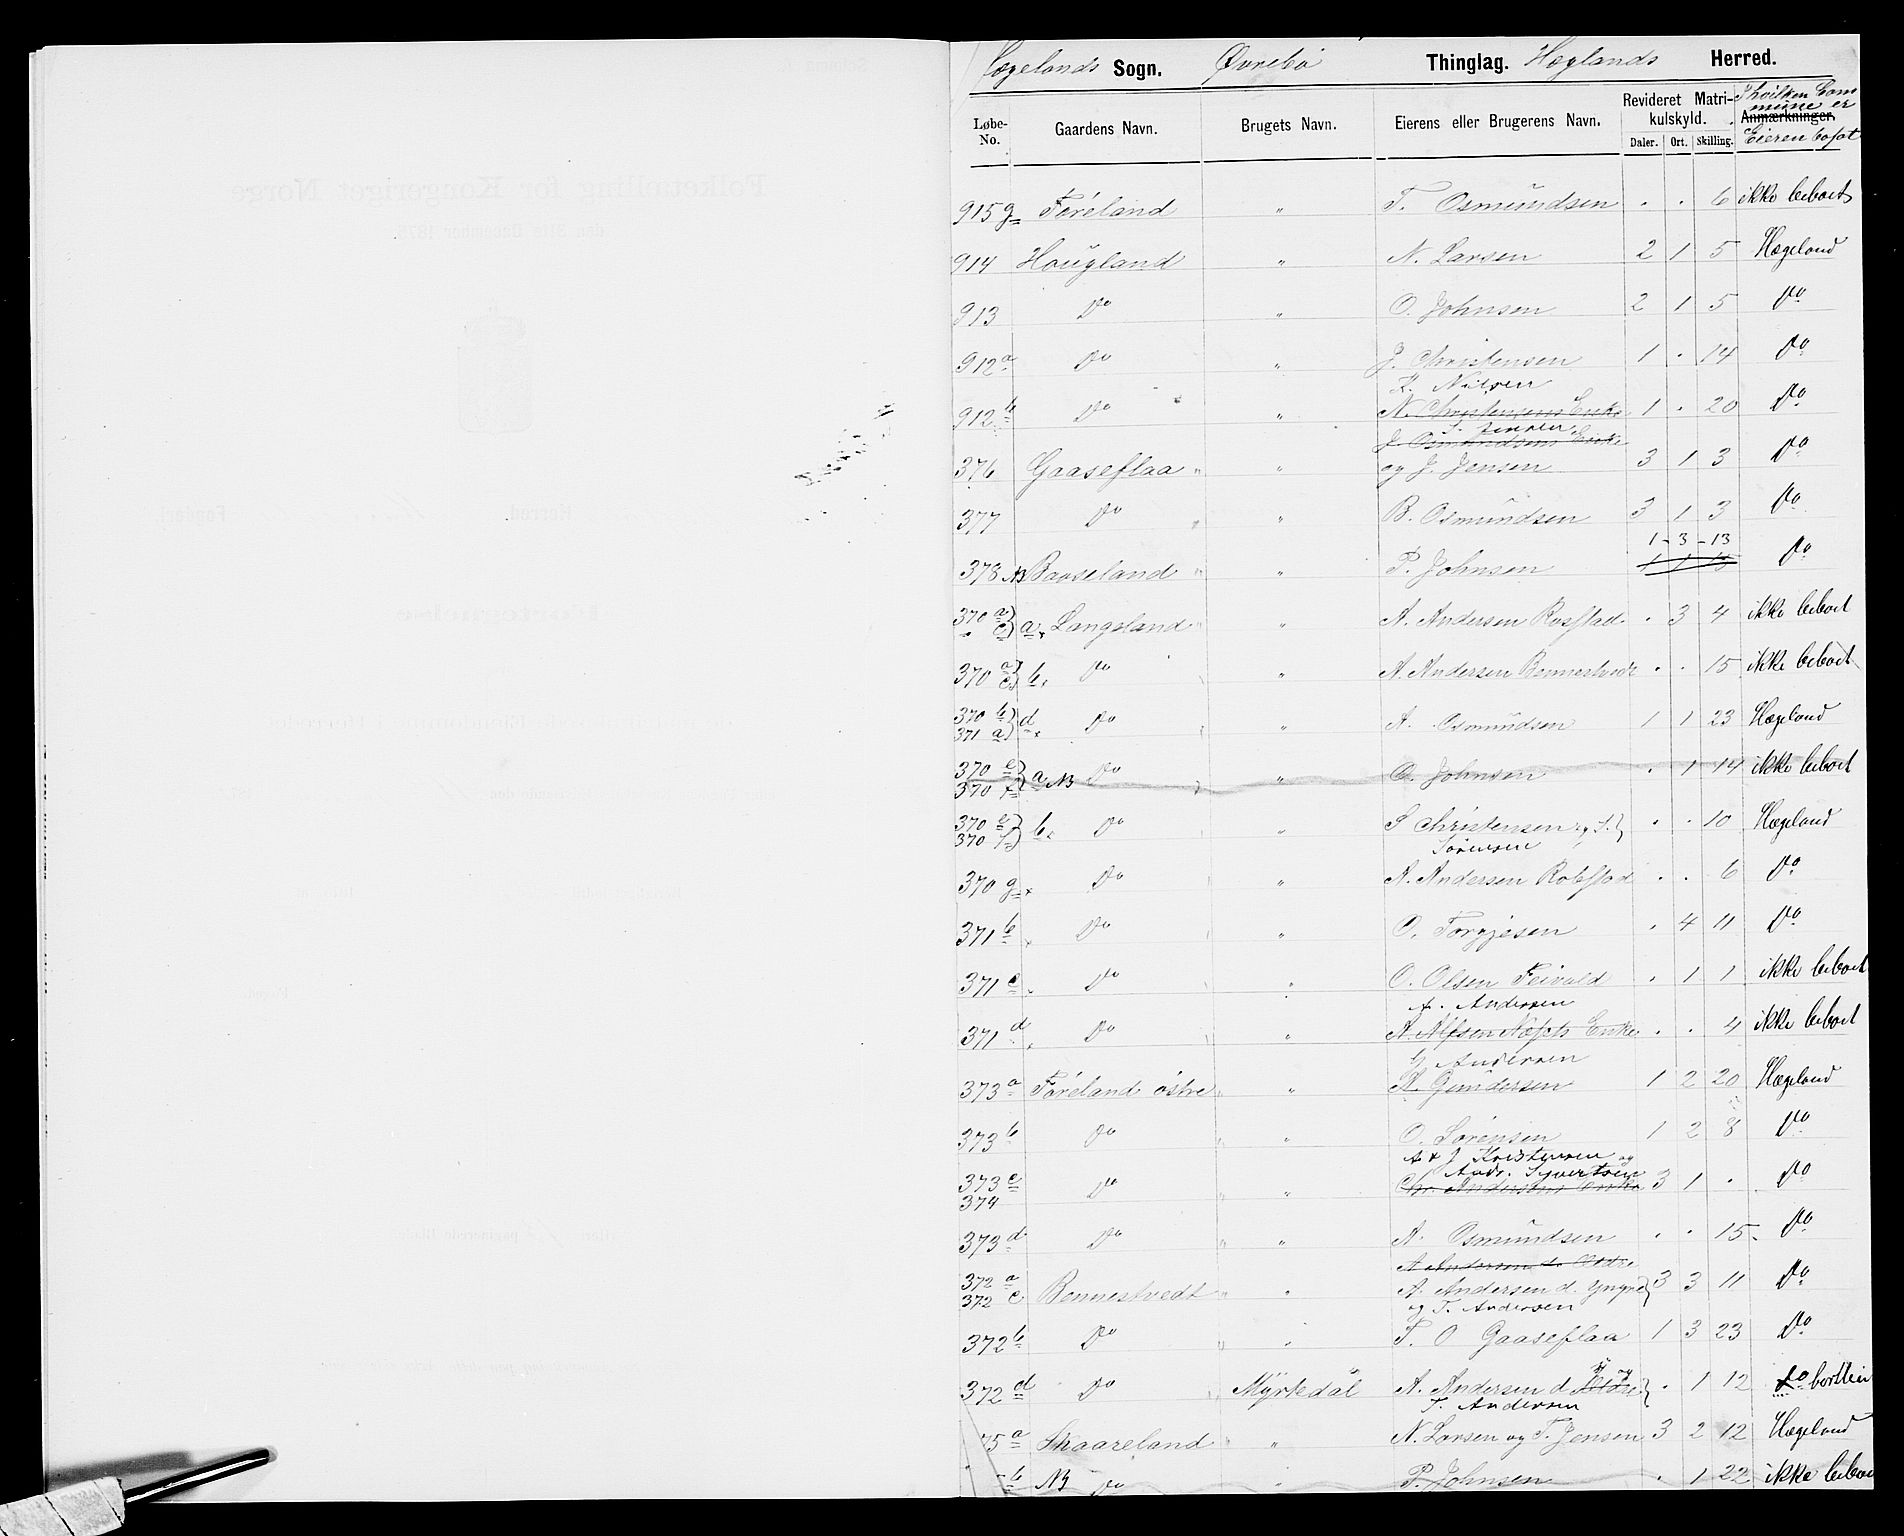 Hægelands Sogn. Øvrebö Thinglag. Hæglands Herred.
Løbe-No. Gaardens Navn. Brugets Navn. Eierens eller Brugerens Navn. Revideret Matrikulskyld. Daler. Ort. Skilling. Anmærkninger. I hvilken Commune er Eieren bosat
915 g Föreland " T. Osmundsen . . 6 ikke beboet
914 Hougland " N. Larsen 2 1 5 Hægeland
913 Do " O. Johnsen 2 1 5 Do
912 a Do " J. Christensen 1 . 14 Do
K. Nilsen
912 b Do " N. Christensens Enke 1 . 20 Do
J. Osmundsens Enke
376 Gaaseflaa " " og J. Jensen 3 1 3 Do
377 Do " " B. Osmundsen 3 1 3 Do
1 - 3 - 13
378 NB Baaseland " " P. Johnsen Do
370 a c a, Langeland " " A. Andersen Rosstad . 3 4 ikke beboet
370 a c b, Do " A. Andersen Bennestvedt . . 15 ikke beboet
370 b 371 a d Do " A. Osmundsen 1 1 23 Hægeland
370 e 370 f a NB Do " O. Johnsen . 1 14 ikke beboet
370 e 370 f b, Do " S Christensen og S. . . 10 Hægeland
Sörensen
370 g Do " A. Andersen Robstad . . 6 Do
371 b Do " O. Torgjesen . 4 11 Do
371 c Do " O. Olsen Feivold . 1 1 ikke beboet
A. Andersen
371 d Do " Enke . . 4 ikke beboet
G Andersen
373 a Föreland östre " " A. Gundersen 1 2 20 Hægeland
373 b Do " " O. Sörensen 1 2 8 Do
A & J Kristensen og
Andr. Syvertsen
373 c 374 Do " " Chr. Andersens Enke 3 1 . Do
373 d Do " " A. Osmundsen . . 15 Do
A Andersen d. Eldre
372 a 372 c Bennestvedt " " A. Andersen d. Yngre 3 3 11 Do
og T. Andersen
372 b Do " " T. O Gaaseflaa 1 3 23 Do
372 d Do " Myrtedal A. Andersen d. Eldre . 1 12 Do
T. Andersen
75 a Skaareland " " N. Larsen og T. Jensen 3 2 12 Hægeland
b NB Do " P. Johnsen . 1 22 ikke beboe